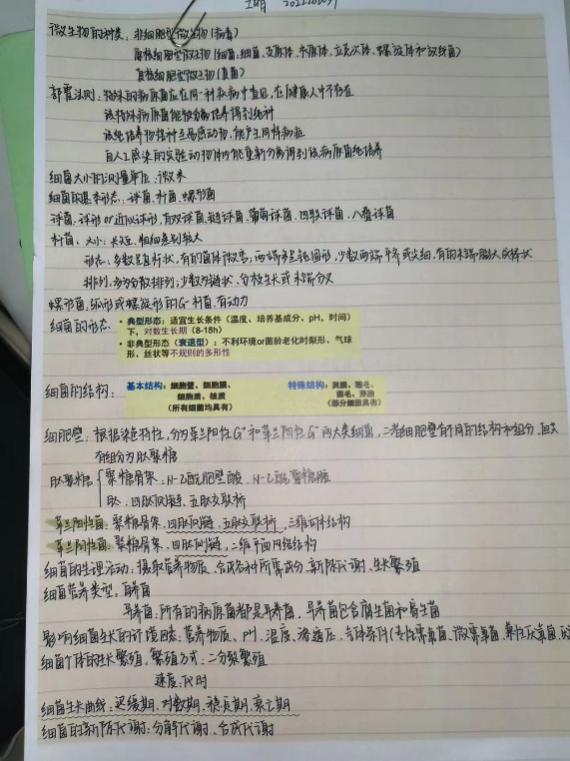 微生物的种类：非细胞型微生物（病毒）
原核细胞型微生物（细菌：细菌、支原体、衣原体、立克次体、螺旋体和放线菌）
真核细胞型微生物（真菌）
郭霍法则：特殊的病原菌应在同一种疾病中查见，在健康人中不存在
该特殊病原菌能被分离培养得到纯种
该纯培养物接种至易感动物，能产生同样病症
自人工感染的实验动物体内能重新分离得到该病原菌纯培养
细菌大小的测量单位：微米
细菌的基本形态：球菌、杆菌、螺形菌
球菌：球形or近似球形，有双球菌、链球菌、葡萄球菌、四联球菌、八叠球菌
杆菌：大小：长短、粗细差别较大
形态：多数呈直杆状，有的菌体微弯；两端多呈钝圆形，少数两端平齐或尖细，有的末端膨大成棒状
排列：多为分散排列；少数为链状、分枝生长或末端分叉
螺形菌：弧形或螺旋形的G⁻杆菌，有动力
细菌的形态：
• 典型形态：适宜生长条件（温度、培养基成分、pH、时间）
下，对数生长期（8-18h）
• 非典型形态（衰退型）：不利环境or菌龄老化时梨形、气球
形、丝状等不规则的多形性
细菌的结构：
基本结构：细胞壁、细胞膜、
细胞质、核质
（所有细菌均具有）
特殊结构：荚膜、鞭毛、
菌毛、芽胞
（部分细菌具有）
细胞壁：根据染色特性，分为革兰阳性G⁺和革兰阴性G⁻两大类细菌，二者细胞壁有不同的结构和组分，但共
有组分为肽聚糖
肽聚糖 聚糖骨架：N-乙酰胞壁酸、N-乙酰葡糖胺
肽：四肽侧链、五肽交联桥
革兰阳性菌：聚糖骨架、四肽侧链、五肽交联桥，三维立体结构
革兰阴性菌：聚糖骨架、四肽侧链，二维平面网络结构
细菌的生理活动：摄取营养物质、合成各种所需成分、新陈代谢、生长繁殖
细菌营养类型：自养菌
异养菌：所有的病原菌都是异养菌，异养菌包含腐生菌和寄生菌
影响细菌生长的环境因素：营养物质、PH、温度、渗透压、气体条件（专性需氧菌、微需氧菌、兼性厌氧菌、
细菌个体的生长繁殖：繁殖方式：二分裂繁殖
速度：代时
细菌生长曲线：迟缓期、对数期、稳定期、衰亡期
细菌的新陈代谢：分解代谢、合成代谢